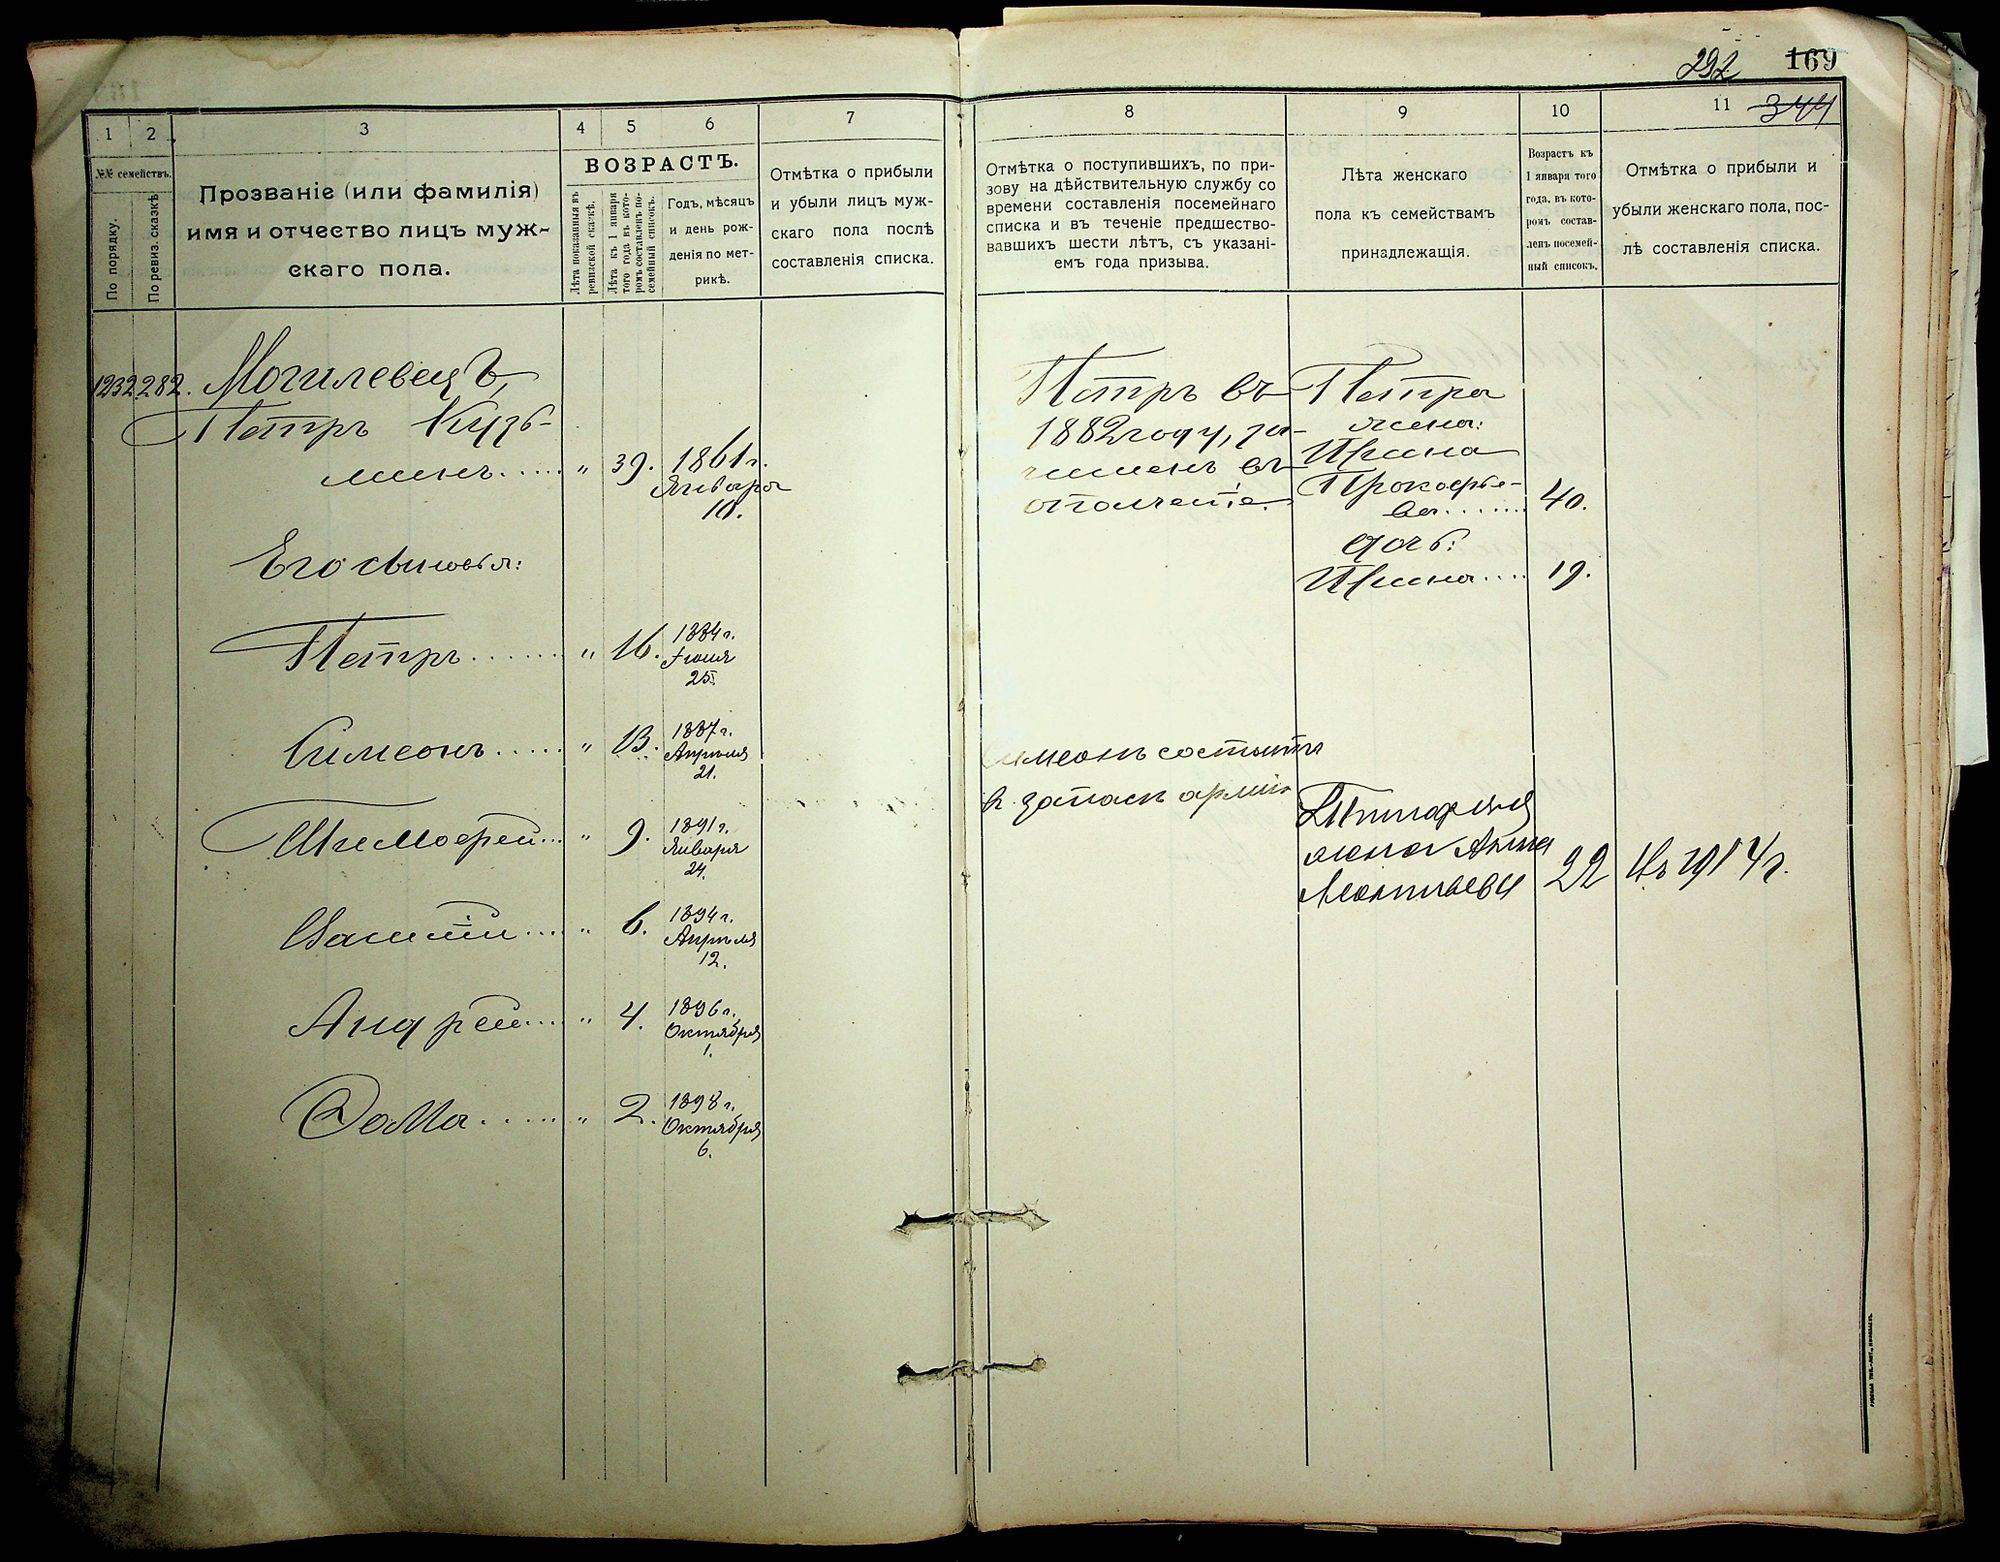 292 169
344
1 2 3 4 5 6 7 8 9 10 11
№№ семействъ.
По порядку.
По ревиз. сказкѣ
Прозваніе (или фамилія)
имя и отчество лицъ муж-
скаго пола.
ВОЗРАСТЪ.
Лѣта показанныя въ
ревизской сказкѣ.
Лѣта къ 1 января
того года въ кото-
ромъ составленъ по-
семейный списокъ.
Годъ, мѣсяцъ
и день рож-
денія по мет-
рикѣ.
Отмѣтка о прибыли
и убыли лицъ муж-
скаго пола послѣ
составленія списка.
Отмѣтка о поступившихъ, по при-
зову на дѣйствительную службу со
времени составленія посемейнаго
списка и въ теченіе предшество-
вавшихъ шести лѣтъ, съ указані-
емъ года призыва.
Лѣта женскаго
пола къ семействамъ
принадлежащія.
Возрастъ къ
1 января того
года, въ кото-
ромъ состав-
ленъ посемей-
ный списокъ.
Отмѣтка о прибыли и
убыли женскаго пола, пос-
лѣ составленія списка.
1232 282. Могилевецъ,
Петръ Кузь-
минъ..... „ 39. 1861 г.
Января
10.
Его сыновья:
Петръ....... „ 16. 1884 г.
Іюня
25.
Симеонъ..... „ 13. 1887 г.
Апрѣля
21.
Тимофей... „ 9. 1891 г.
Января
24.
Василій.... „ 6. 1894 г.
Апрѣля
12.
Андрей.... „ 4. 1896 г.
Октября
1.
Фома....... „ 2. 1898 г.
Октября
6.
Петръ въ
1882 году, за-
численъ въ
ополченіе.
Симеонъ состоитъ
в запасѣ арміи
Петра
жена:
Ирина
Прокофье-
ва....... 40.
дочь:
Ирина.... 19.
жена Анна
Леонтьева 22 Въ 1914 г.